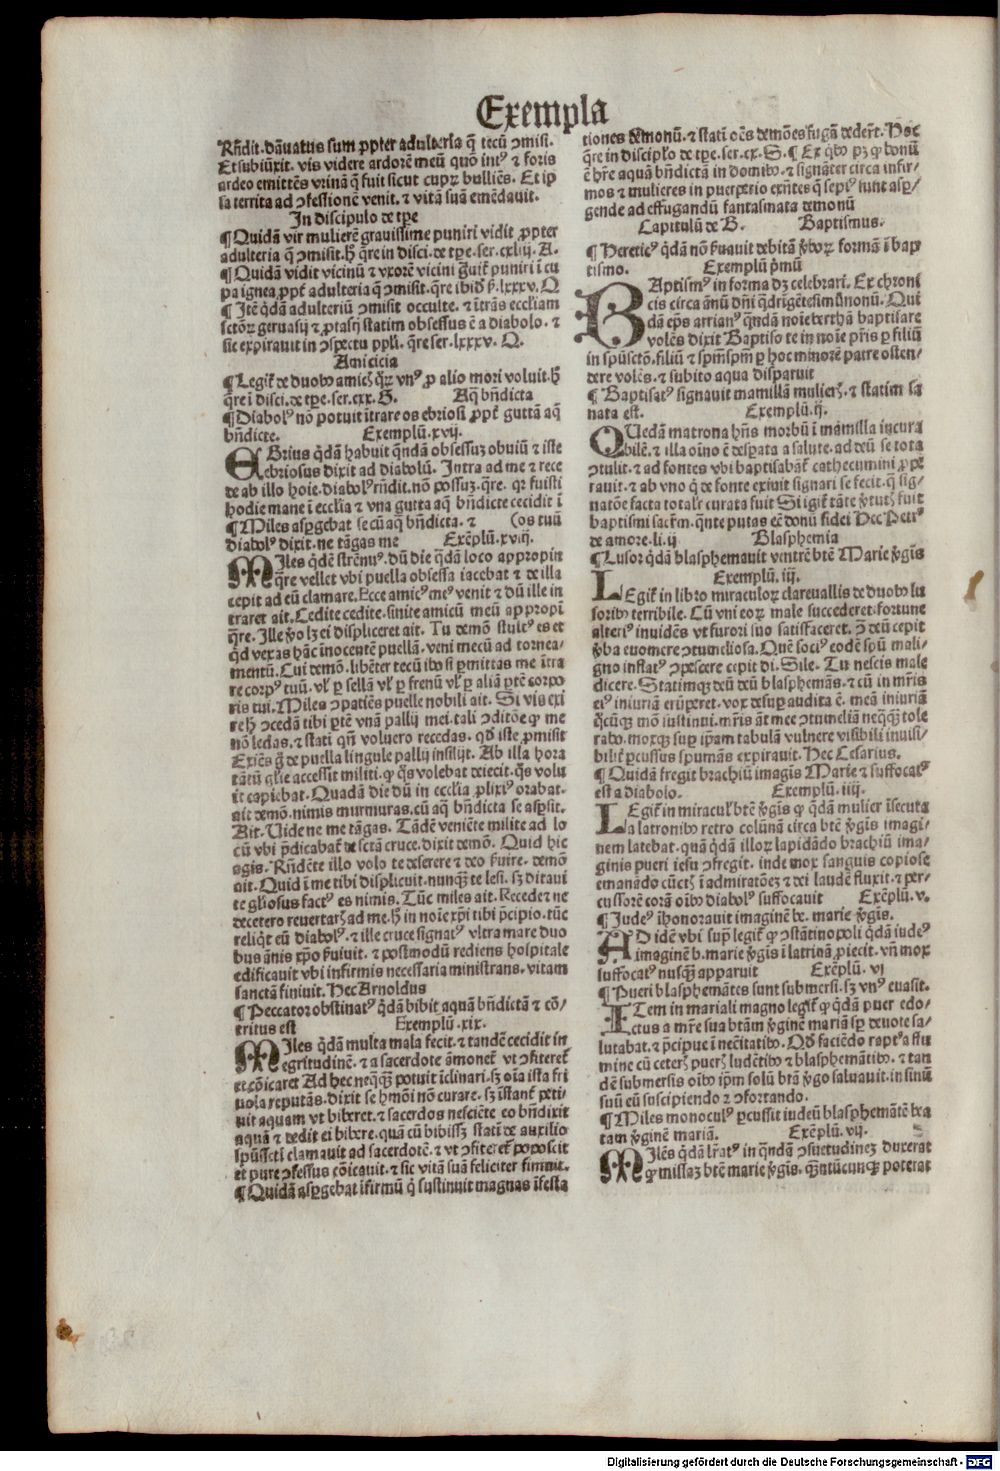 Exempla
Rñdit. dãnatus sum ꝓpter adulteria q̃ tecũ ꝯmisi.
Et subiũxit. vis videre ardorẽ meũ quõ intꝰ ⁊ foris
ardeo emittẽs vrinã q̃ fuit sicut cuprũ bulliẽs. Et ip
sa territa ad ꝯfessionẽ venit. ⁊ vitã suã emẽdauit.
In discipulo de tp̃e
¶ Quidã vir mulierẽ grauissime puniri vidit ꝓpter
adulteria q̃ ꝯmisit. h̃ q̃re in disci. de tp̃e. ser. cxliij. A.
¶ Quidã vidit vicinũ ⁊ vxorẽ vicini puniri ĩ cu
pa ignea ꝓpt̃ adulteria q̃ ꝯmisit. q̃re ibid̃ lxxxv. Q
¶ Itẽ q̃dã adulteriũ ꝯmisit occulte. ⁊ ĩtrãs eccliam
sctõꝝ geruasij ⁊ ꝓtasij statim obsessus ẽ a diabolo. ⁊
sic expirauit in ꝯspectu ppl̃i. q̃re ser. lxxxv. Q.
Amicicia
¶ Legit̃ de duobꝰ amicꝭ vnꝰ ꝓ alio mori voluit. h̃
q̃re ĩ disci. de tp̃e. ser. cxx. S. Aq̃ bñdicta
¶ Diabolꝰ nõ potuit ĩtrare os ebriosi ꝓpt̃ guttã aq̃
bñdicte. Exemplũ. xvij.
EBrius q̃dã habuit q̃ndã obsessuꝫ obuiũ ⁊ iste
ebriosus dixit ad diabolũ. Intra ad me ⁊ rece
de ab illo hoĩe. diabolꝰ rñdit. nõ possuꝫ. q̃re. qꝛ fuisti
hodie mane ĩ ecclĩa ⁊ vna gutta aq̃ bñdicte cecidit ĩ
¶ Miles asꝑgebat se cũ aq̃ bñdicta. ⁊ (os tuũ
diabolꝰ dixit. ne tãgas me Exẽplũ. xviij.
MIles q̃dẽ strẽnuꝰ. dũ die q̃dã loco appropin
q̃re vellet vbi puella obsessa iacebat ⁊ de illa
cepit ad eũ clamare. Ecce amicꝰ meꝰ venit ⁊ dũ ille in
traret ait. Cedite cedite. sinite amicũ meũ appropĩ
q̃re. Ille ꝟo lꝫ ei displiceret ait. Tu demõ stultꝰ es et
q̃d vexas hãc inocentẽ puellã. veni mecũ ad tornea⸗
mentũ. Cui demõ. libẽter tecũ ibo si ꝑmittas me ĩtra
re corpꝰ tuũ. vl̃ ꝑ sellã vl̃ ꝑ frenũ vl̃ ꝑ aliã ꝑtẽ corpo
ris tui. Miles ꝯpatiẽs puelle nobili ait. Si vis exi
re h̃ ꝯcedã tibi ꝑtẽ vnã pallij mei. tali ꝯditõe ꝙ me
nõ ledas. ⁊ statĩ qñ voluero recedas. qd̃ iste ꝓmisit
Exiẽs g̃ de puella lingule pallij insilijt. Ab illa hora
tãtũ glie accessit militi. ꝙ q̃s volebat deiecit. q̃s volu
it capiebat. Quadã die dũ in ecclĩa ꝓlixiꝰ orabat.
ait demõ. nimis murmuras. cũ aq̃ bñdicta se asꝑsit.
Ait. Uide ne me tãgas. Tãdẽ veniẽte milite ad lo
cũ vbi p̃dicabat̃ de sctã cruce. dixit demõ. Quid hic
agis. Rñdẽte illo volo te deserere ⁊ deo s̃uire. demõ
ait. Quid ĩ me tibi displicuit. nunqꝫ te lesi. sꝫ ditaui
te gliosus factꝰ es nimis. Tũc miles ait. Recede ⁊ ne
decetero reuertarꝭ ad me. h̃ in noĩe xp̃i tibi p̃cipio. tũc
reliq̃t eũ diabolꝰ. ⁊ ille cruce signatꝰ vltra mare duo
bus ãnis xp̃o s̃uiuit. ⁊ postmodũ rediens hospitale
edificauit vbi infirmis necessaria ministrans. vitam
sanctã finiuit. Hec Arnoldus
¶ Peccator obstinatꝰ q̃dã bibit aquã bñdictã ⁊ cõ⸗
tritus est Exemplũ. xix.
MIles q̃dã multa mala fecit. ⁊ tandẽ cecidit in
egritudinẽ. ⁊ a sacerdote ãmonet̃ vt ꝯfiteret̃
et cõicaret Ad hec neq̃q̃ potuit ĩclinari. sꝫ oĩa ista fri
uola reputãs. dixit se hmõi nõ curare. sꝫ ĩstant̃ peti⸗
uit aquam vt biberet. ⁊ sacerdos nesciẽte eo bñdixit
aquã ⁊ dedit ei bibere. quã cũ bibissꝫ statĩ de auxilio
spũsscti clamauit ad sacerdotẽ. ⁊ vt ꝯfiteret̃ poposcit
et pure ꝯfessus cõicauit. ⁊ sic vitã suã feliciter finiuit.
¶ Quidã asꝑgebat ĩfirmũ q̃ sustinuit magnas ĩfesta
tiones demonũ. ⁊ statĩ oẽs demões fugã dederũt. Hoc
q̃re in discipl̃o de tp̃e. ser. cx. S. ¶ Ex qͥbꝰ pꝫ ꝙ bonũ
ẽ hr̃e aquã bñdictã in domibꝰ. ⁊ signãter circa infir⸗
mos ⁊ mulieres in puerperio exñtes q̃ sepiꝰ sunt asꝑ⸗
gende ad effugandũ fantasmata demonũ
Capitulũ de B. Baptismus.
¶ Hereticꝰ q̃dã nõ s̃uauit debitã ꝟboꝝ formã ĩ bap
tismo. Exemplũ p̃mũ
BAptismꝰ in forma dꝫ celebrari. Ex chroni
cis circa ãnũ dñi q̃drigẽtesimũnonũ. Qui
dã ep̃s arrianꝰ q̃ndã noĩe berthã baptisare
volẽs dixit Baptiso te in noĩe pr̃is ꝑ filiũ
in spũsctõ. filiũ ⁊ spm̃sctm̃ ꝑ hoc minorẽ patre osten⸗
dere volẽs. ⁊ subito aqua disparuit
¶ Baptisatꝰ signauit mamillã mulierꝭ. ⁊ statim sa
nata est. Exemplũ. ij.
QUedã matrona hñs morbũ ĩ mamilla incura
bilẽ. ⁊ illa oĩno ẽ desꝑata a salute. ad deũ se tota
ꝯtulit. ⁊ ad fontes vbi baptisabãt̃ cathecumini ꝓpe
rauit. ⁊ ab vno q̃ de fonte exiuit signari se fecit. q̃ sig⸗
natõe facta totalr̃ curata fuit Si igit̃ tãte ꝟtutꝭ fuit
baptismi sacrm̃. q̃nte putas eẽ donũ fidei Hec Petrꝰ
de amore. li. ij Blasphemia
¶ Lusor q̃dã blasphemauit ventrẽ btẽ Marie ꝟgĩs
Exemplũ. iij.
LEgit̃ in libro miraculoꝝ clareuallis de duobꝰ lu
soribꝰ terribile. Cũ vni eoꝝ male succederet. fortune
alteriꝰ inuidẽs vt furori suo satisfaceret. ꝯ̃ deũ cepit
ꝟba euomere ꝯtumeliosa. Quẽ sociꝰ eodẽ spũ mali⸗
gno inflatꝰ ꝯpescere cepit dĩ. Sile. Tu nescis male
dicere. Statimqꝫ deũ deũ blasphemãs. ⁊ cũ in mr̃is
eiꝰ iniuriã erũperet. vox desuꝑ audita ẽ. meã iniuriã
q̃cũqꝫ mõ sustinui. mr̃is ãt mee ꝯtumeliã neq̃qꝫ tole
rabo. moxqꝫ suꝑ ipsam tabulã vulnere visibili inuisi⸗
bilit̃ ꝑcussus spumãs expirauit. Hec Cesarius.
¶ Quidã fregit brachiũ imagĩs Marie ⁊ suffocatꝰ
est a diabolo. Exemplũ. iiij.
LEgit̃ in miraculꝭ btẽ ꝟgĩs ꝙ q̃dã mulier ĩsecuta
a latronibꝰ retro colũnã circa btẽ ꝟgĩs imagi⸗
nem latebat. quã q̃dã illoꝝ lapidãdo brachiũ ima⸗
ginis pueri iesu ꝯfregit. inde mox sanguis copiose
emanãdo cũctꝭ ĩ admiratõeꝫ ⁊ dei laudẽ fluxit. ⁊ per⸗
cussorẽ corã oĩbꝰ diabolꝰ suffocauit Exẽplũ. v.
¶ Iudeꝰ ĩhonorauit imaginẽ be. marie ꝟgĩs.
AD idẽ vbi sup̃ legit̃ ꝙ ꝯstãtinopoli q̃dã iudeꝰ
imaginẽ b. marie ꝟgĩs ĩ latrinã ꝓiecit. vñ mox
suffocatꝰ nusqꝫ apparuit Exẽplũ. vj
¶ Pueri blasphemãtes sunt submersi. sꝫ vnꝰ euasit.
ITem in mariali magno legit̃ ꝙ q̃dã puer edo⸗
ctus a mr̃e sua btãm ꝟginẽ mariã sp̃ deuote sa⸗
lutabat. ⁊ p̃cipue ĩ necẽitatibꝰ. Qd̃ faciẽdo raptꝰ a flu
mine cũ ceterꝭ puerꝭ ludẽtibꝰ ⁊ blasphemãtibꝰ. ⁊ tan
dẽ submersis oĩbꝰ ipm̃ solũ btã ꝟgo saluauit. in sinũ
suũ eũ suscipiendo ⁊ ꝯfortando.
¶ Miles monoculꝰ ꝑcussit iudeũ blasphemãtẽ bea
tam ꝟginẽ mariã. Exẽplũ. vij.
MIles q̃dã lr̃atꝰ in q̃ndã ꝯsuetudineꝫ duxerat
ꝙ missaꝫ btẽ marie ꝟgĩs. q̃ntũcunqꝫ poterat
Digitalisierung gefördert durch die Deutsche Forschungsgemeinschaft - DFG